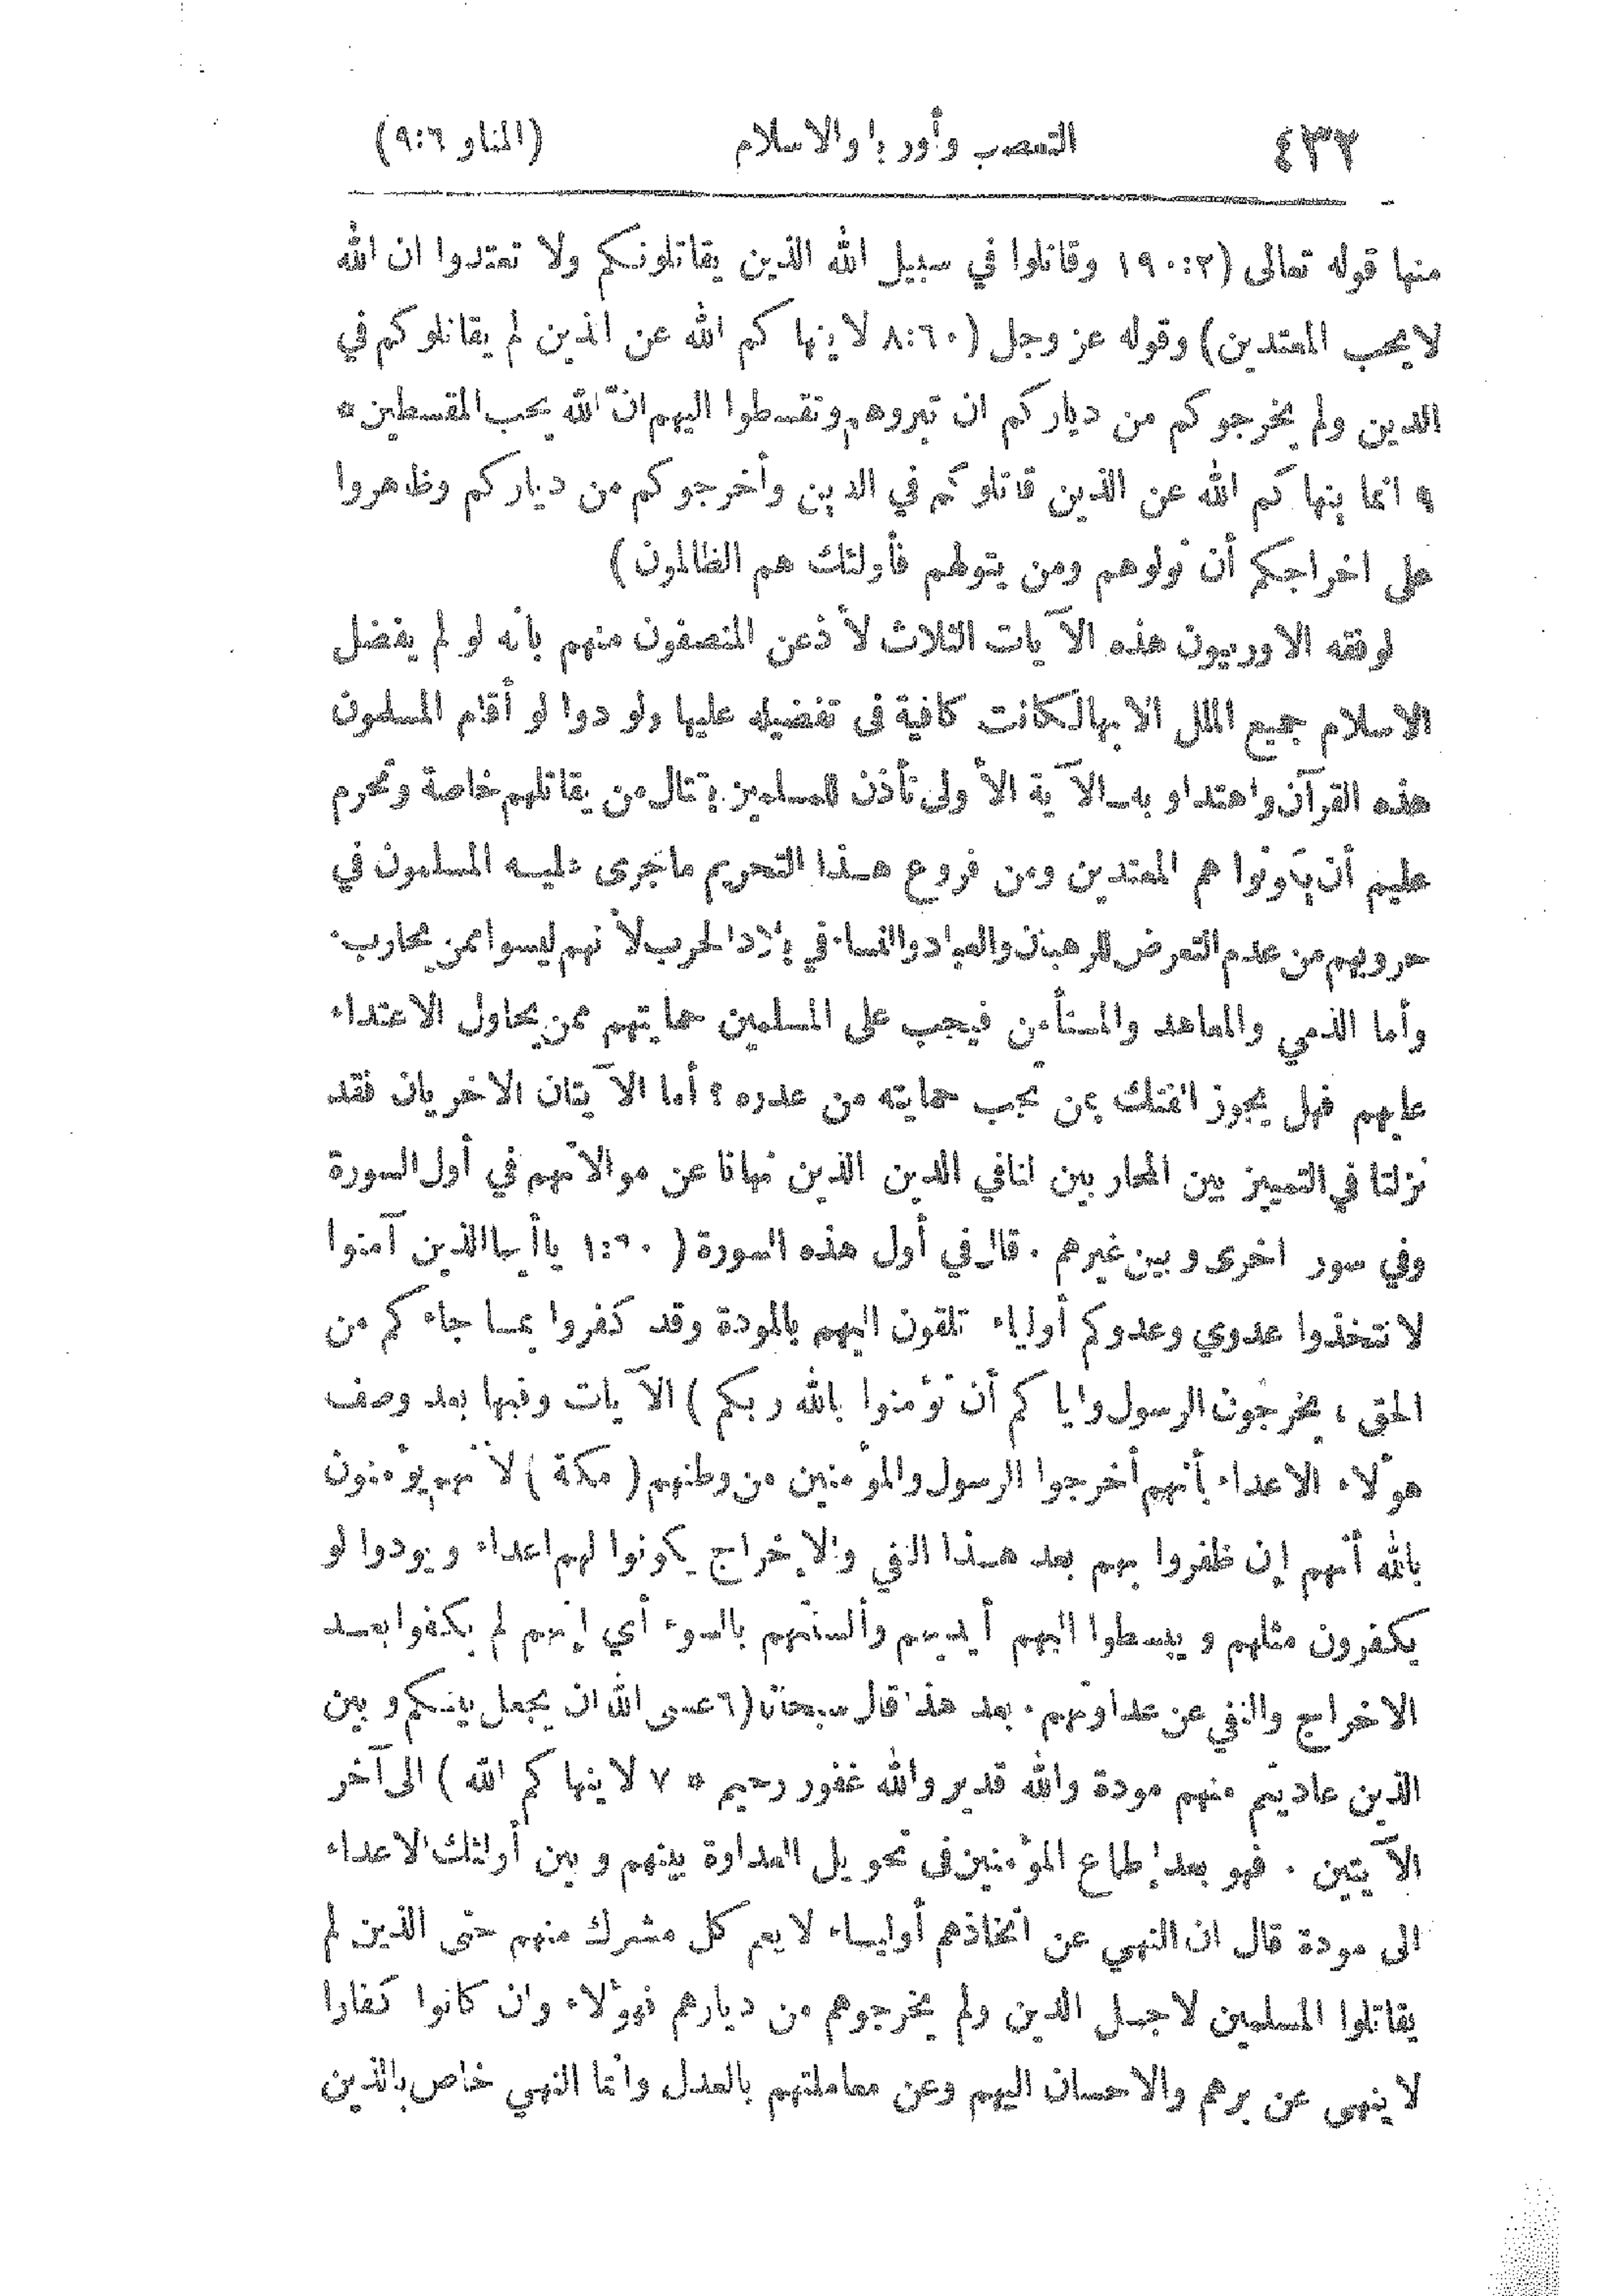 ٤٣٢ التعصب وأوربا والاسلام (المنار ٩:٦)
منها قوله تعالى (١٩٠:٢ وقاتلوا في سبيل الله الذين يقاتلونكم ولا تعتدوا ان الله
لا يحب المعتدين) وقوله عز وجل (٨:٦٠ لا ينهاكم الله عن الذين لم يقاتلوكم في
الدين ولم يخرجوكم من دياركم ان تبروهم وتقسطوا اليهم انّ الله يحب المقسطين *
٩ انما ينهاكم الله عن الذين قاتلوكم في الدين وأخرجوكم من دياركم وظاهروا
على اخراجكم أن تولوهم ومن يتولهم فأولئك هم الظالمون)
لو فقه الاوربيون هذه الآيات الثلاث لأذعن المنصفون منهم بأنه لو لم يفضل
الاسلام جميع الملل الا بها لكانت كافية في تفضيله عليها ولودوا لو أقام المسلمون
هذه القرآن واهتدوا به ـ الآية الأولى تأذن للمسلمين بقتال من يقاتلهم خاصة وتحرم
عليهم أن يكونوا هم المعتدين ومن فروع هـذا التحريم ما جرى عليـه المسلمون في
حروبهم من عدم التعرض للرهبان والعباد والنساء في بلاد الحرب لأنهم ليسوا ممن يحارب.
وأما الذمي والمعاهد والمستأمن فيجب على المسلمين حمايتهم ممن يحاول الاعتداء
عليهم فهل يجوز الفتك بمن تجب حمايته من عدوه ؟ أما الآيتان الاخريان فقد
نزلتا في التمييز بين المحاربين لنا في الدين الذين نهانا عن موالاتهم في أول السورة
وفي سور اخرى وبين غيرهم . قال في أول هذه السورة (١:٦٠ يا أيها الذين آمنوا
لا تتخذوا عدوي وعدوكم أولياء تلقون اليهم بالمودة وقد كفروا بمـا جاءكم من
الحق ، يخرجون الرسول واياكم أن تؤمنوا بالله ربكم) الآيات وفيها بعد وصف
هؤلاء الاعداء بأنهم أخرجوا الرسول والمؤمنين من وطنهم (مكة) لأنهم يؤمنون
بالله أنهم إن ظفروا بهم بعد هـذا النفي والإخراج يكونوا لهم اعداء ويودوا لو
يكفرون مثلهم ويبسطوا اليهم أيديهم وألسنتهم بالسوء أي إنهم لم يكفوا بعـد
الاخراج والنفي عن عداوتهم . بعد هذا قال سبحانه (٦ عسى الله ان يجعل بينكم وبين
الذين عاديتم منهم مودة والله قدير والله غفور رحيم * ٧ لا ينهاكم الله) الى آخر
الآيتين . فهو بعد إطماع المؤمنين في تحويل العداوة بينهم وبين أولئك الاعداء
الى مودة قال ان النهي عن اتخاذهم أوليـاء لا يعم كل مشرك منهم حتى الذين لم
يقاتلوا المسلمين لاجـل الدين ولم يخرجوهم من ديارهم فهؤلاء وان كانوا كفارا
لا ينهى عن برهم والاحسان اليهم وعن معاملتهم بالعدل وانما النهي خاص بالذين